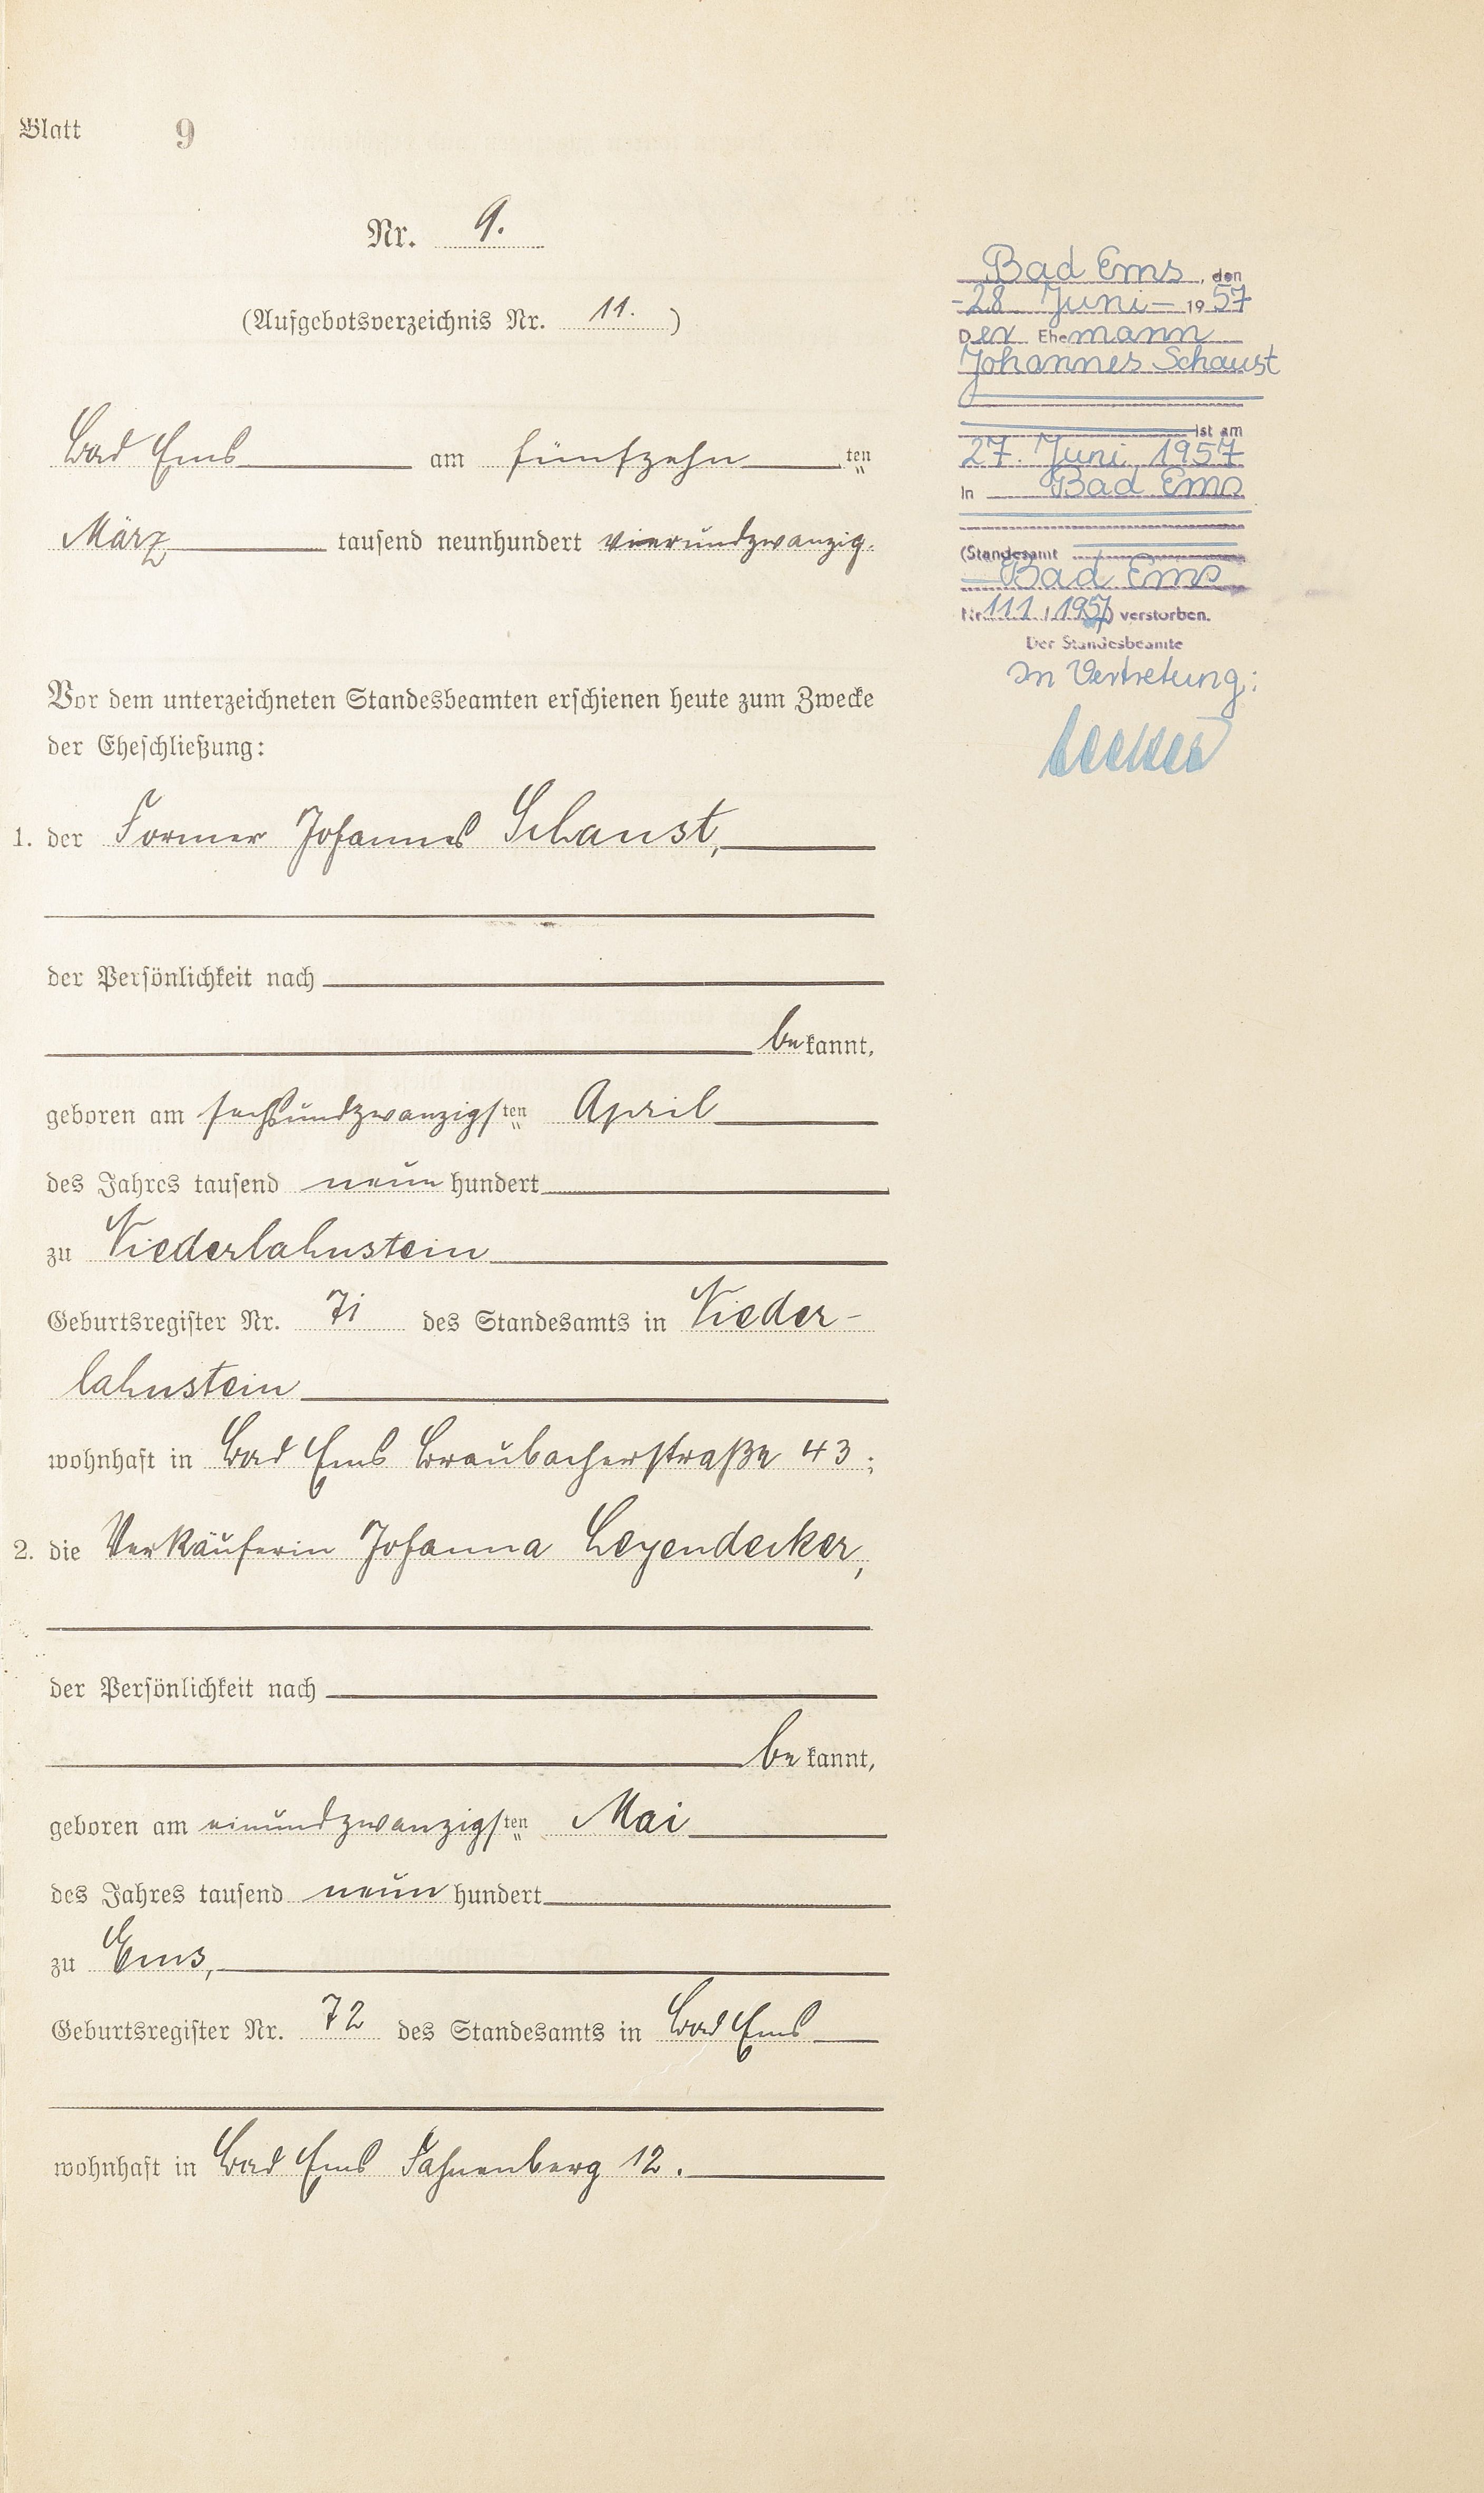 Blatt 9
Nr. 9.
(Aufgebotsverzeichnis Nr. 11.)
Bad Ems am fünfzehn ten
März tausend neunhundert vierundzwanzig.
Vor dem unterzeichneten Standesbeamten erschienen heute zum Zwecke
der Eheschließung:
1. der Former Johannes Schaust,
der Persönlichkeit nach
bekannt,
geboren am sechsundzwanzigsten April
des Jahres tausend neun hundert
zu Niederlahnstein
Geburtsregister Nr. 71 des Standesamts in Nieder-
lahnstein
wohnhaft in Bad Ems Braubacherstraße 43;
2. die Verkäuferin Johanna Leyendecker,
der Persönlichkeit nach
bekannt,
geboren am einundzwanzigsten Mai
des Jahres tausend neun hundert
zu Ems,
Geburtsregister Nr. 72 des Standesamts in Bad Ems
wohnhaft in Bad Ems Fahnenberg 12.
Bad Ems, den
-28. Juni - 1957
Der Ehemann
Johannes Schaust
ist am
27. Juni 1957
in Bad Ems
(Standesamt
Bad Ems
Nr. 111 / 1957) verstorben.
Der Standesbeamte
In Vertretung: